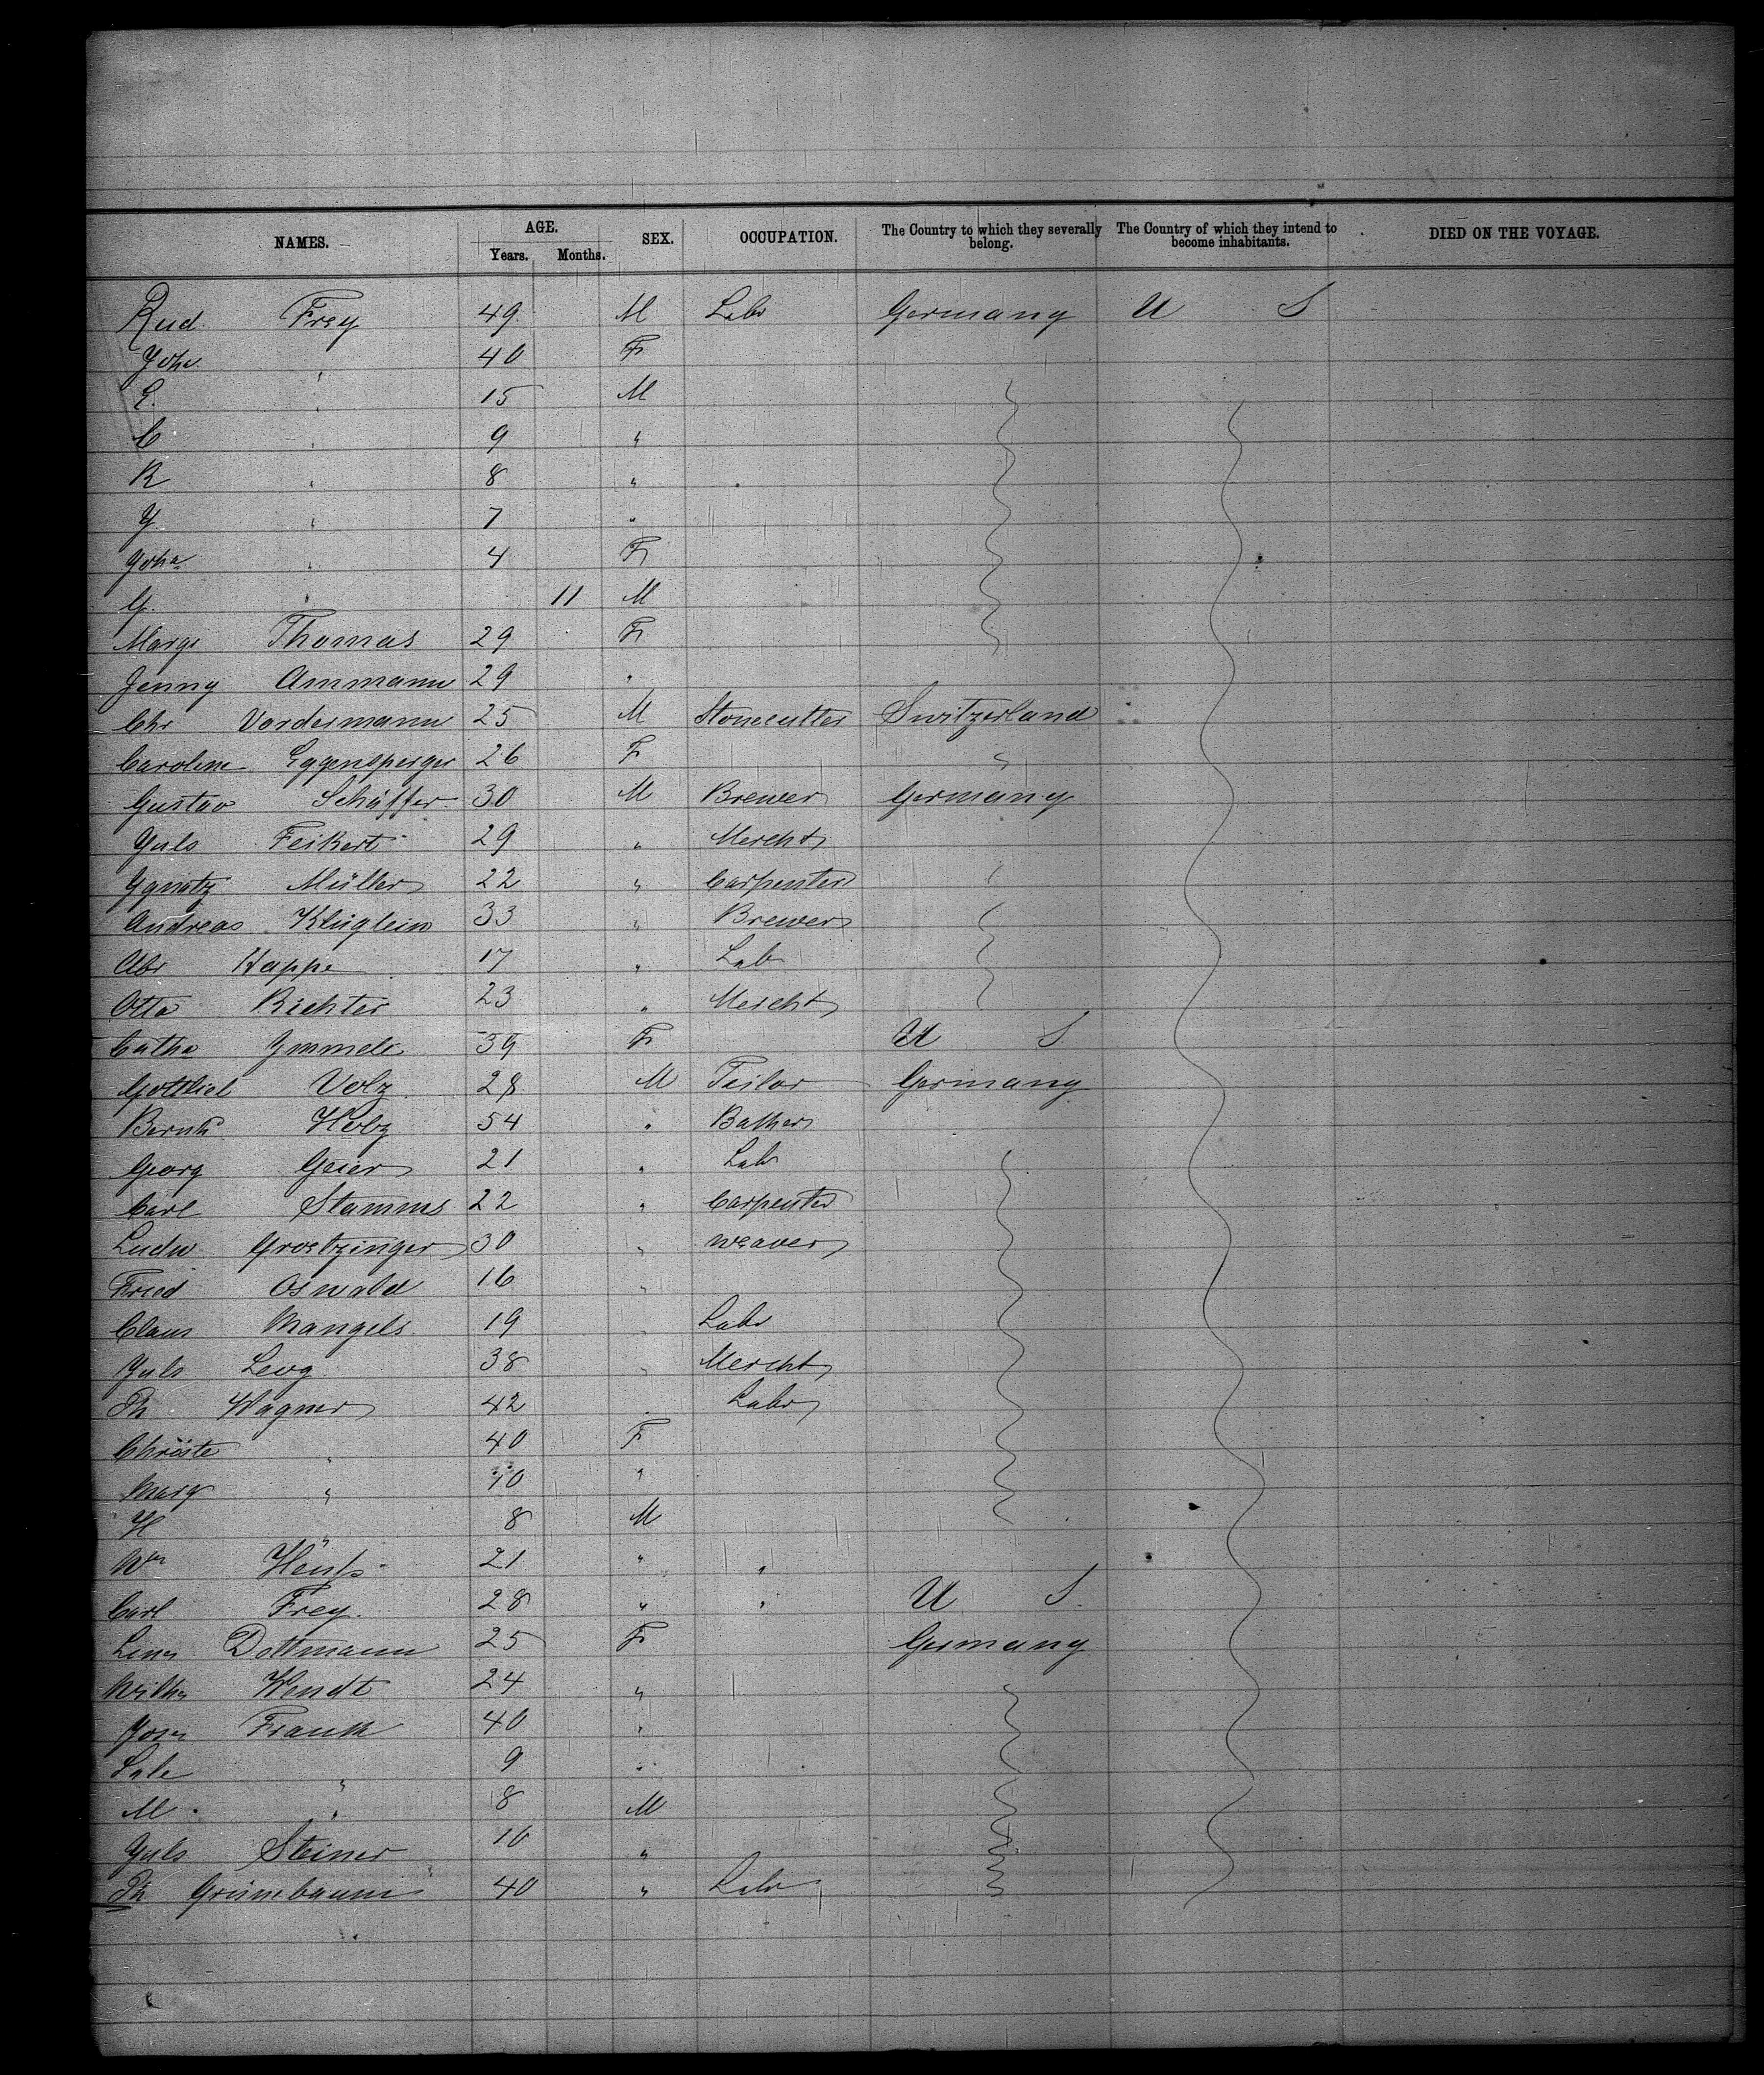 NAMES. AGE. SEX. OCCUPATION. The Country to which they severally belong. The Country of which they intend to become inhabitants. DIED ON THE VOYAGE.
Years. Months.
Rud Frey 49 M Labr Germany U S
Joha " 40 F
E. " 15 M
C " 9 "
R " 8 "
J " 7 "
Joha " 4 F
G. " 11 M
Margs Thomas 29 F
Jenny Ammann 29 "
Chr Vordermann 25 M Stonecutter Switzerland
Caroline Eggensperger 26 F "
Gustav Schäffer 30 M Brewer Germany
Juls Feikert 29 " Mercht
Ignatz Müller 22 " Carpenter
Andreas Klüglein 33 " Brewer
Abr Happe 17 " Lab
Otto Richter 23 " Mercht
Catha Immele 39 F U S
Gottlieb Volz 28 M Teilor Germany
Bernh Holz 54 "
Georg Geier 21 " Labr
Carl Stamms 22 " Carpenter
Ludw Grostzinger 30 " weaver
Fried Oswald 16 "
Claus Mangels 19 " Labr
Juls Levy 38 " Mercht
Ph Wagner 42 " Labr
Christe " 40 F
Marg " 10 "
H " 8 M
Wm 21 " "
Carl Frey 28 " " U S
Lena Dottmann 25 F Germany
Wilha Wendt 24 "
Frank 40 "
Sale " 9 "
M " 8 M
Juls Steiner 16 "
Ph Grünebaum 40 " Labr